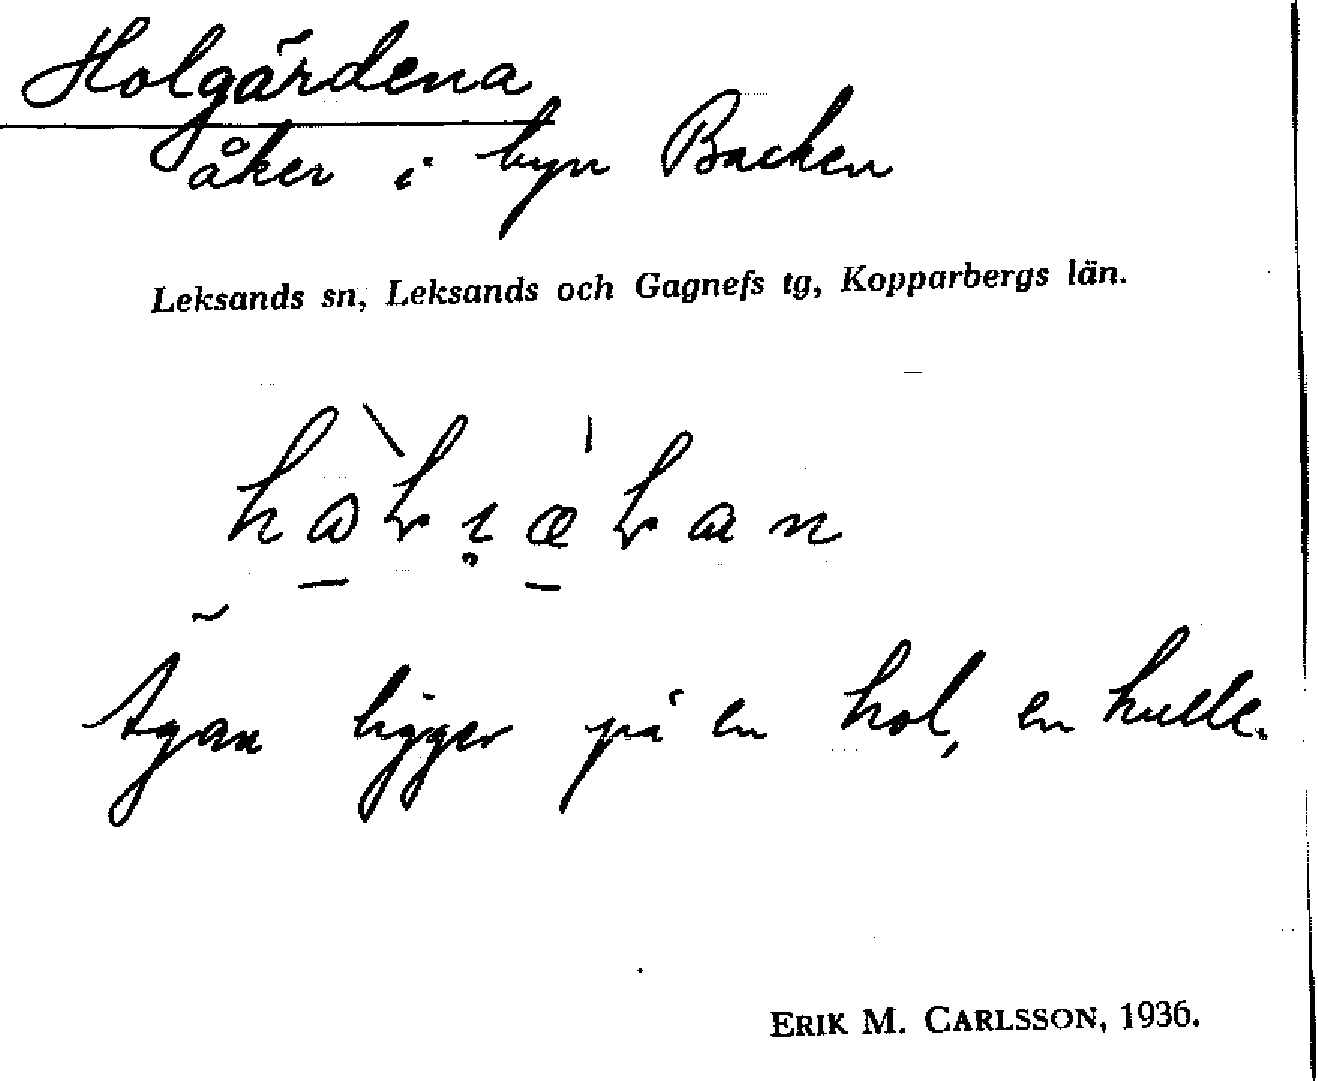 Holgärdena
åker i byn Backen
Leksands sn, Leksands och Gagnefs tg, Kopparbergs län.
ligger på en hol, en kulle.
ERIK M. CARLSSON, 1936.